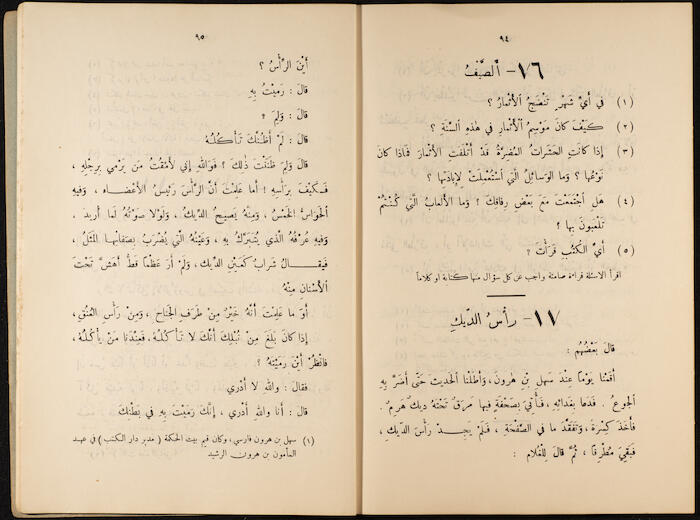 ٩٤
٧٦ - أَلصَّيْفُ
(١) في أَيِّ شَهْرٍ تَنْضَجُ الْأَثْمَارُ ؟
(٢) كَيْفَ كانَ مَوْسِمُ الْأَثْمارِ في هٰذِهِ السَّنَةِ ؟
(٣) إِذا كانَتِ الْحَشَراتُ الْمُضِرَّةُ قَدْ أَتْلَفَتِ الْأَثْمارَ فَماذا كانَ
نَوْعُها ؟ وما الْوَسائِلُ الَّتي اَسْتُعْمِلَتْ لِإِبادَتِها ؟
(٤) هَلِ اَجْتَمَعْتَ مَعَ بَعْضِ رِفاقِكَ ؟ وَما الْأَلْعابُ الَّتي كُنْتُمْ
تَلْعَبُونَ بِها ؟
(٥) أَيَّ الْكُتُبِ قَرَأْتَ ؟
اقرأ الاسئلة قراءة صامتة واجب عن كل سؤال منها كتابة او كلاماً
٧٧ - رأسُ الدّيكِ
قالَ بَعْضُهُم :
أَقَمْنا يَوْماً عِنْدَ سَهْلِ بْنِ هٰرونَ، وَأَطَلْنا الْحَديثَ حَتّى أَضَرَّ بِهِ
الْجوعُ . فَدَعا بِغَدائِهِ ، فَأُتِيَ بِصَحْفَةٍ فيها مَرَقٌ تَحْتَهُ ديكٌ هَرِمٌ .
فَأَخَذَ كِسْرَةً، وَتَفَقَّدَ ما في الصَّفْحَةِ ، فَلَمْ يَجِدْ رَأْسَ الدّيكِ،
فَبَقِيَ مُطْرِقاً ، ثُمَّ قالَ لِلْغُلامِ :
٩٥
أَيْنَ الرَّأْسُ ؟
قالَ : رَمَيْتُ بِهِ
قالَ : وَلِمَ ؟
قالَ : لَمْ أَظُنَّكَ تَأْكُلُهُ
قالَ وَلِمَ ظَنَنْتَ ذٰلِكَ ؟ فَوَاللهِ إِنّي لَأَمْقُتُ مَنْ يَرْمي بِرِجْلِهِ ،
فَكَيْفَ بِرَأْسِهِ ! أَما عَلِمْتَ أَنَّ الرَّأْسَ رَئيسُ الْأَعْضاءِ ، وَفيهِ
الْحَواسُّ الْخَمْسُ ، وَمِنْهُ يَصيحُ الدّيكُ ، وَلَوْلا صَوْتُهُ لَما أُريدَ .
وَفيهِ عُرْفُهُ الَّذي يُتَبَرَّكُ بِهِ ، وَعَيْنُهُ الَّتي يُضْرَبُ بِصَفائِها الْمَثَلُ ،
فَيُقالُ شَرابٌ كَعَيْنِ الدّيكِ ، وَلَمْ أَرَ عَظْماً قَطُّ أَهَشَّ تَحْتَ
الْأَسْنانِ مِنْهُ
أَوَ ما عَلِمْتَ أَنَّهُ خَيْرٌ مِنْ طَرَفِ الْجَناحِ ، وَمِنْ رَأْسِ الْعُنُقِ ،
إِذا كانَ بَلَغَ مِنْ نُبْلِكَ أَنَّكَ لا تَأْكُلُهُ، فَعِنْدَنا مَنْ يَأْكُلُهُ،
فَانْظُرْ أَيْنَ رَمَيْتَهُ ؟
فَقالَ : وَاللهِ لا أَدْري
قالَ : أَنا وَاللهِ أَدْري ، إِنَّكَ رَمَيْتَ بِهِ في بَطْنِكَ
(١) سهل بن هرون فارسي ، وكان قيم بيت الحكمة ( مدير دار الكتب ) في عهد
المأمون بن هرون الرشيد